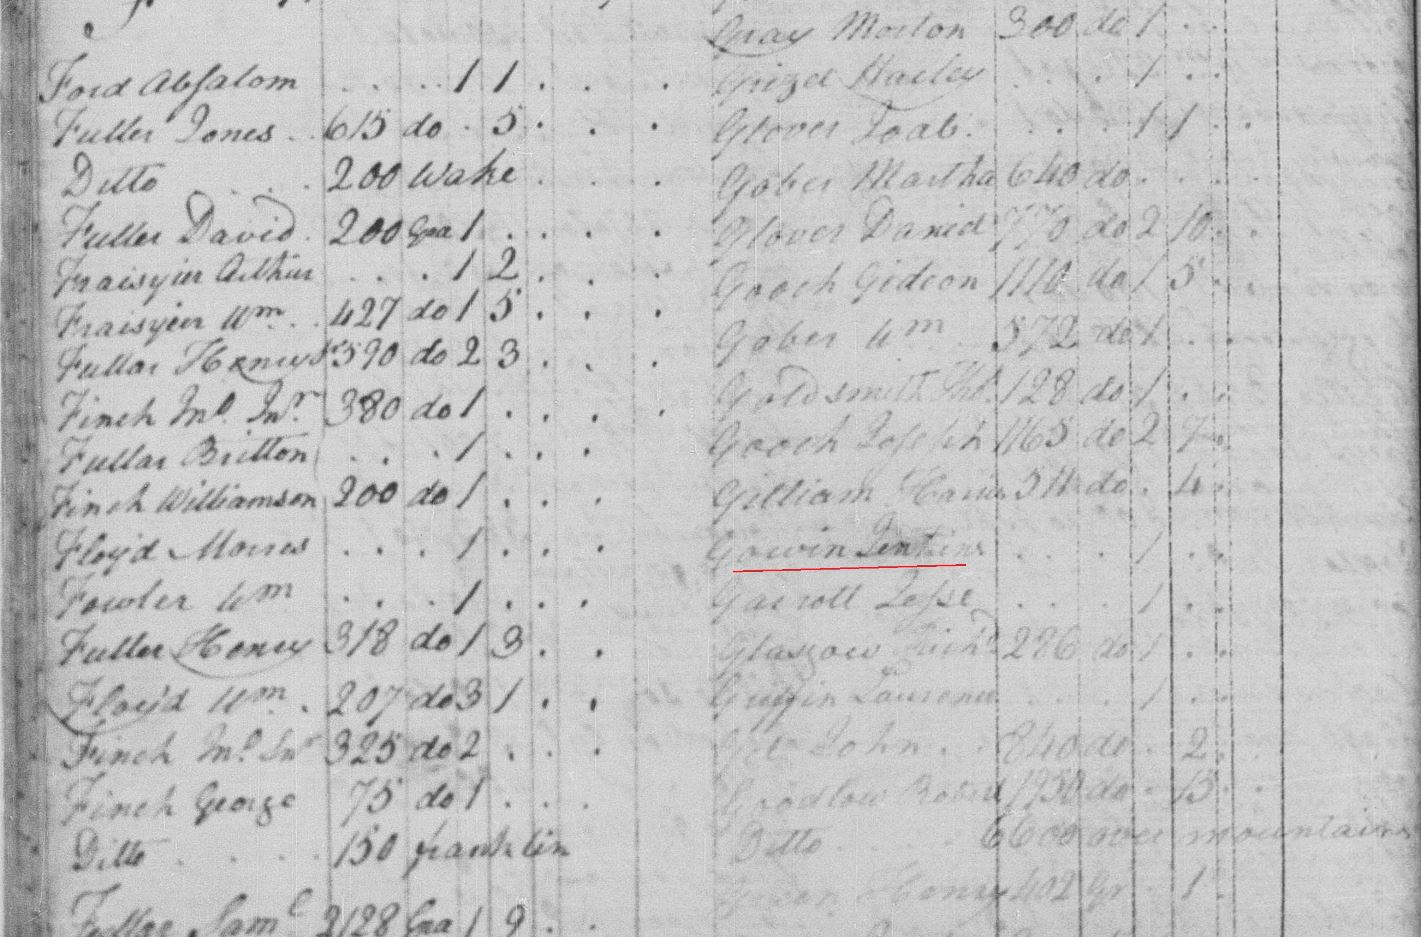 Ford Absalom . . . . 1 1 . . .
Fuller Jones . 615 do . 5 . . .
Ditto . . . 200 Wake . . .
Fuller David . 200 Gra 1 . . . .
Fraisyier Arthur . . . 1 2 . . .
Fraisyier Wm . . 427 do 1 5 . . .
Fullar Henry 590 do 2 3 . . .
Finch Jno. Jnr 380 do 1 . . . .
Fullar Britton . . . 1 . . .
Finch Williamson 200 do 1 . . .
Floyd Morres . . . 1 . . .
Fowler Wm . . . 1 . . .
Fuller Henry 318 do 1 3 . .
Floyd Wm . 207 do 3 1 . .
Finch Jno. 325 do 2 . . .
Finch George 75 do 1 . . .
Ditto . . . . 150 franklin
Fullar Saml 2128 Gra 1 9 . .
Gray Morton 300 do 1 . .
Grizel Harley . . . 1 . .
Glover Joab . . . . 1 1 . .
Gober Martha 640 do . . . .
Glover Daniel 770 do 2 10 . .
Gooch Gideon do 1 5 .
Gober Wm 572 do 1 . . .
Goldsmith Tho. 128 do 1 . .
Gooch Joseph 1165 do 2 7 .
Gilliam Harris do . 4 .
Gowin Jenkins . . . 1 . .
Garrott Jesse . . . 1 . .
Glasgow Richd 286 do 1 . .
Griffin Laurence . . . 1 . .
John . . 840 do . 2 .
Goodlow Robert 1750 do . 13 . .
Ditto . . . 6600 over mountains
Henry 402 Gr . 1 .